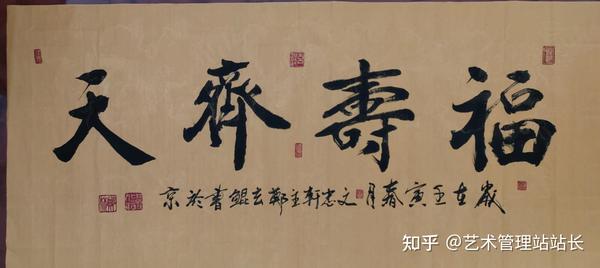 福壽齊天
歲在壬寅春月文忠軒主鄭鯤書於京
知乎 @艺术管理站站长